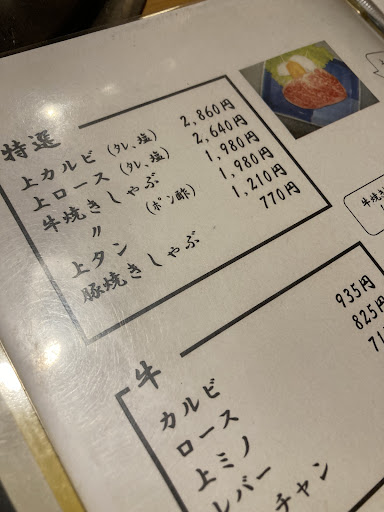 特選
上カルビ (タレ、塩) 2,860円
上ロース (タレ、塩) 2,640円
牛焼きしゃぶ 1,980円
〃 (ポン酢) 1,980円
上タン 1,210円
豚焼きしゃぶ 770円
牛焼き
牛
カルビ 935円
ロース 825円
上ミノ 71
レバー
チャン